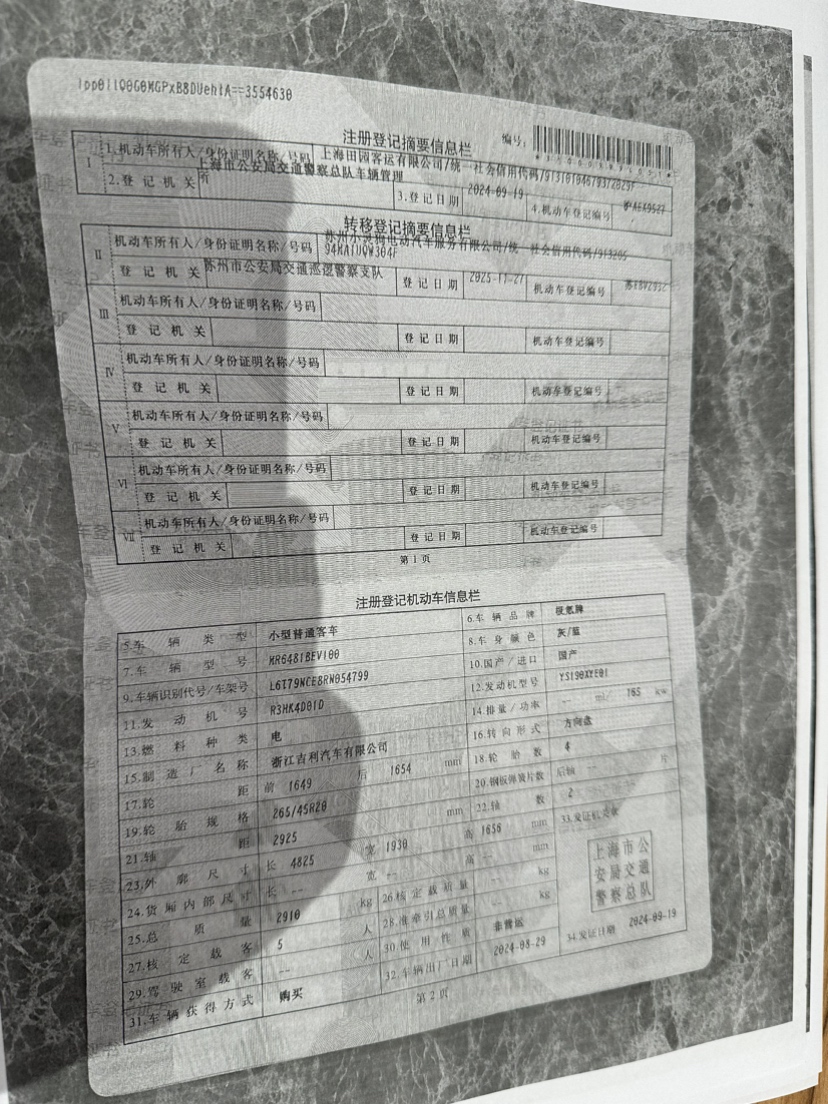 注册登记摘要信息栏
编号:
I
1.机动车所有人/身份证明名称/号码 上海田园客运有限公司/统一社会信用代码/
2.登记机关 上海市公安局交通警察总队车辆管理所 3.登记日期 2024-09-19 4.机动车登记编号
转移登记摘要信息栏
II
机动车所有人/身份证明名称/号码 苏州小灵狗电动汽车服务有限公司/统一社会信用代码/
登记机关 苏州市公安局交通巡逻警察支队 登记日期 2025-11-27 机动车登记编号
III
机动车所有人/身份证明名称/号码
登记机关 登记日期 机动车登记编号
IV
机动车所有人/身份证明名称/号码
登记机关 登记日期 机动车登记编号
V
机动车所有人/身份证明名称/号码
登记机关 登记日期 机动车登记编号
VI
机动车所有人/身份证明名称/号码
登记机关 登记日期 机动车登记编号
VII
机动车所有人/身份证明名称/号码
登记机关 登记日期 机动车登记编号
第1页
注册登记机动车信息栏
5.车辆类型 小型普通客车 6.车辆品牌 极氪牌
7.车辆型号 MR6481BEV100 8.车身颜色 灰/蓝
9.车辆识别代号/车架号 L6T79NCE8RN054799 10.国产/进口 国产
11.发动机号 R3HK4D01D 12.发动机型号 YS190XYE01
13.燃料种类 电 14.排量/功率 -- ml/ 165 kw
15.制造厂名称 浙江吉利汽车有限公司 16.转向形式 方向盘
17.轮距 前 1649 后 1654 mm 18.轮胎数 4
19.轮胎规格 265/45R20 20.钢板弹簧片数 后轴 -- 片
21.轴距 2925 mm 22.轴数 2
23.外廓尺寸 长 4825 宽 1930 高 1656 mm 33.发证机关章
24.货厢内部尺寸 长 -- 宽 -- 高 -- mm
25.总质量 2910 kg 26.核定载质量 -- kg
27.核定载客 5 人 28.准牵引总质量 -- kg
29.驾驶室载客 -- 人 30.使用性质 非营运
31.车辆获得方式 购买 32.车辆出厂日期 2024-08-29 34.发证日期 2024-09-19
上海市公
安局交通
警察总队
第2页